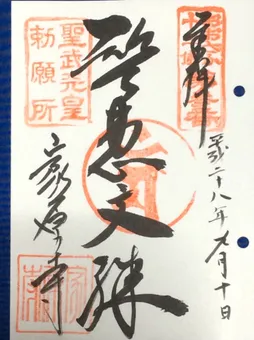 奉拝
平成二十八年九月十日
智恵文殊
聖武天皇
勅願所
家原寺